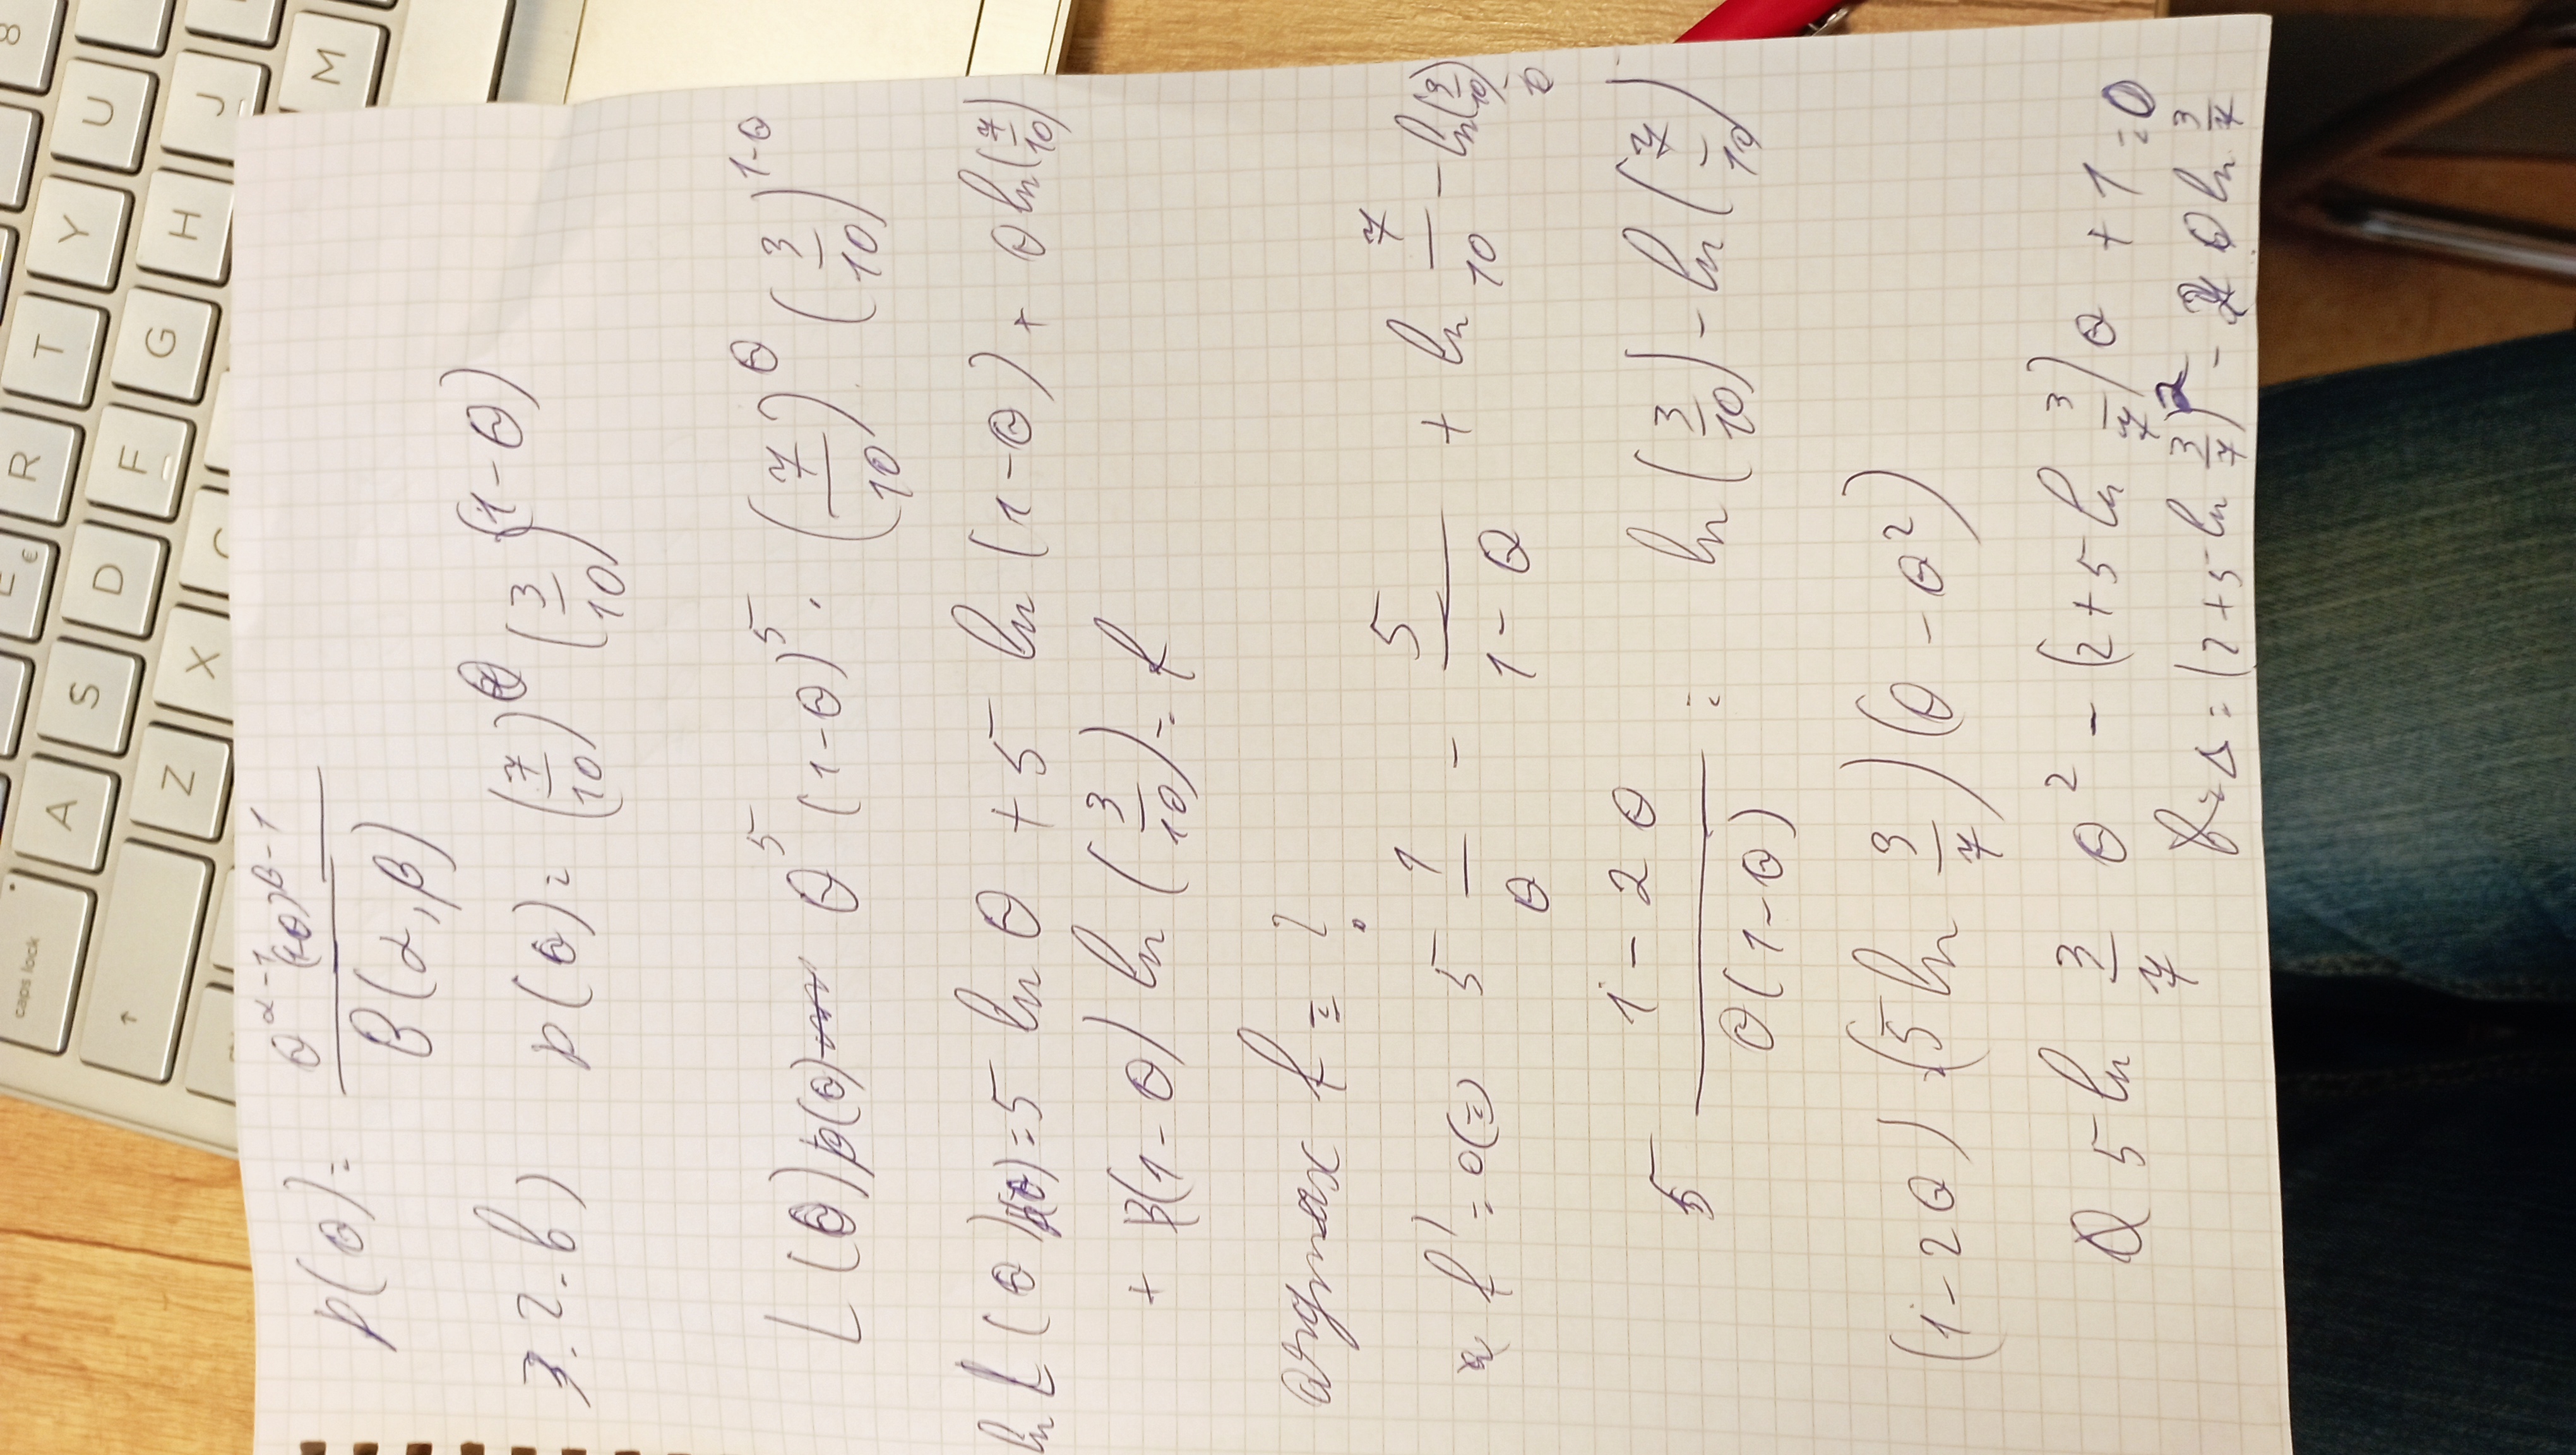 caps lock
E € R T Y U 8
A S D F G H J
Z X C M
p(θ) = θ^(α-1) (1-θ)^(β-1) / B(α, β)
3.2.b) p(θ) = (7/10)^θ (3/10)^(1-θ)
L(θ)p(θ) θ^5 (1-θ)^5 · (7/10)^θ · (3/10)^(1-θ)
ln L(θ)p(θ) = 5 ln θ + 5 ln (1-θ) + θ ln(7/10)
+ (1-θ) ln (3/10) = f
argmax f = ?
f' = 0 (=) 5 1/θ - 5/(1-θ) + ln 7/10 - ln(3/10) = 0
5 (1-2θ)/(θ(1-θ)) = ln(3/10) - ln(7/10)
(1-2θ) = (5 ln 3/7)(θ - θ²)
5 ln 3/7 θ² - (2 + 5 ln 3/7)θ + 1 = 0
Δ = (2 + 5 ln 3/7)² - 20 ln 3/7